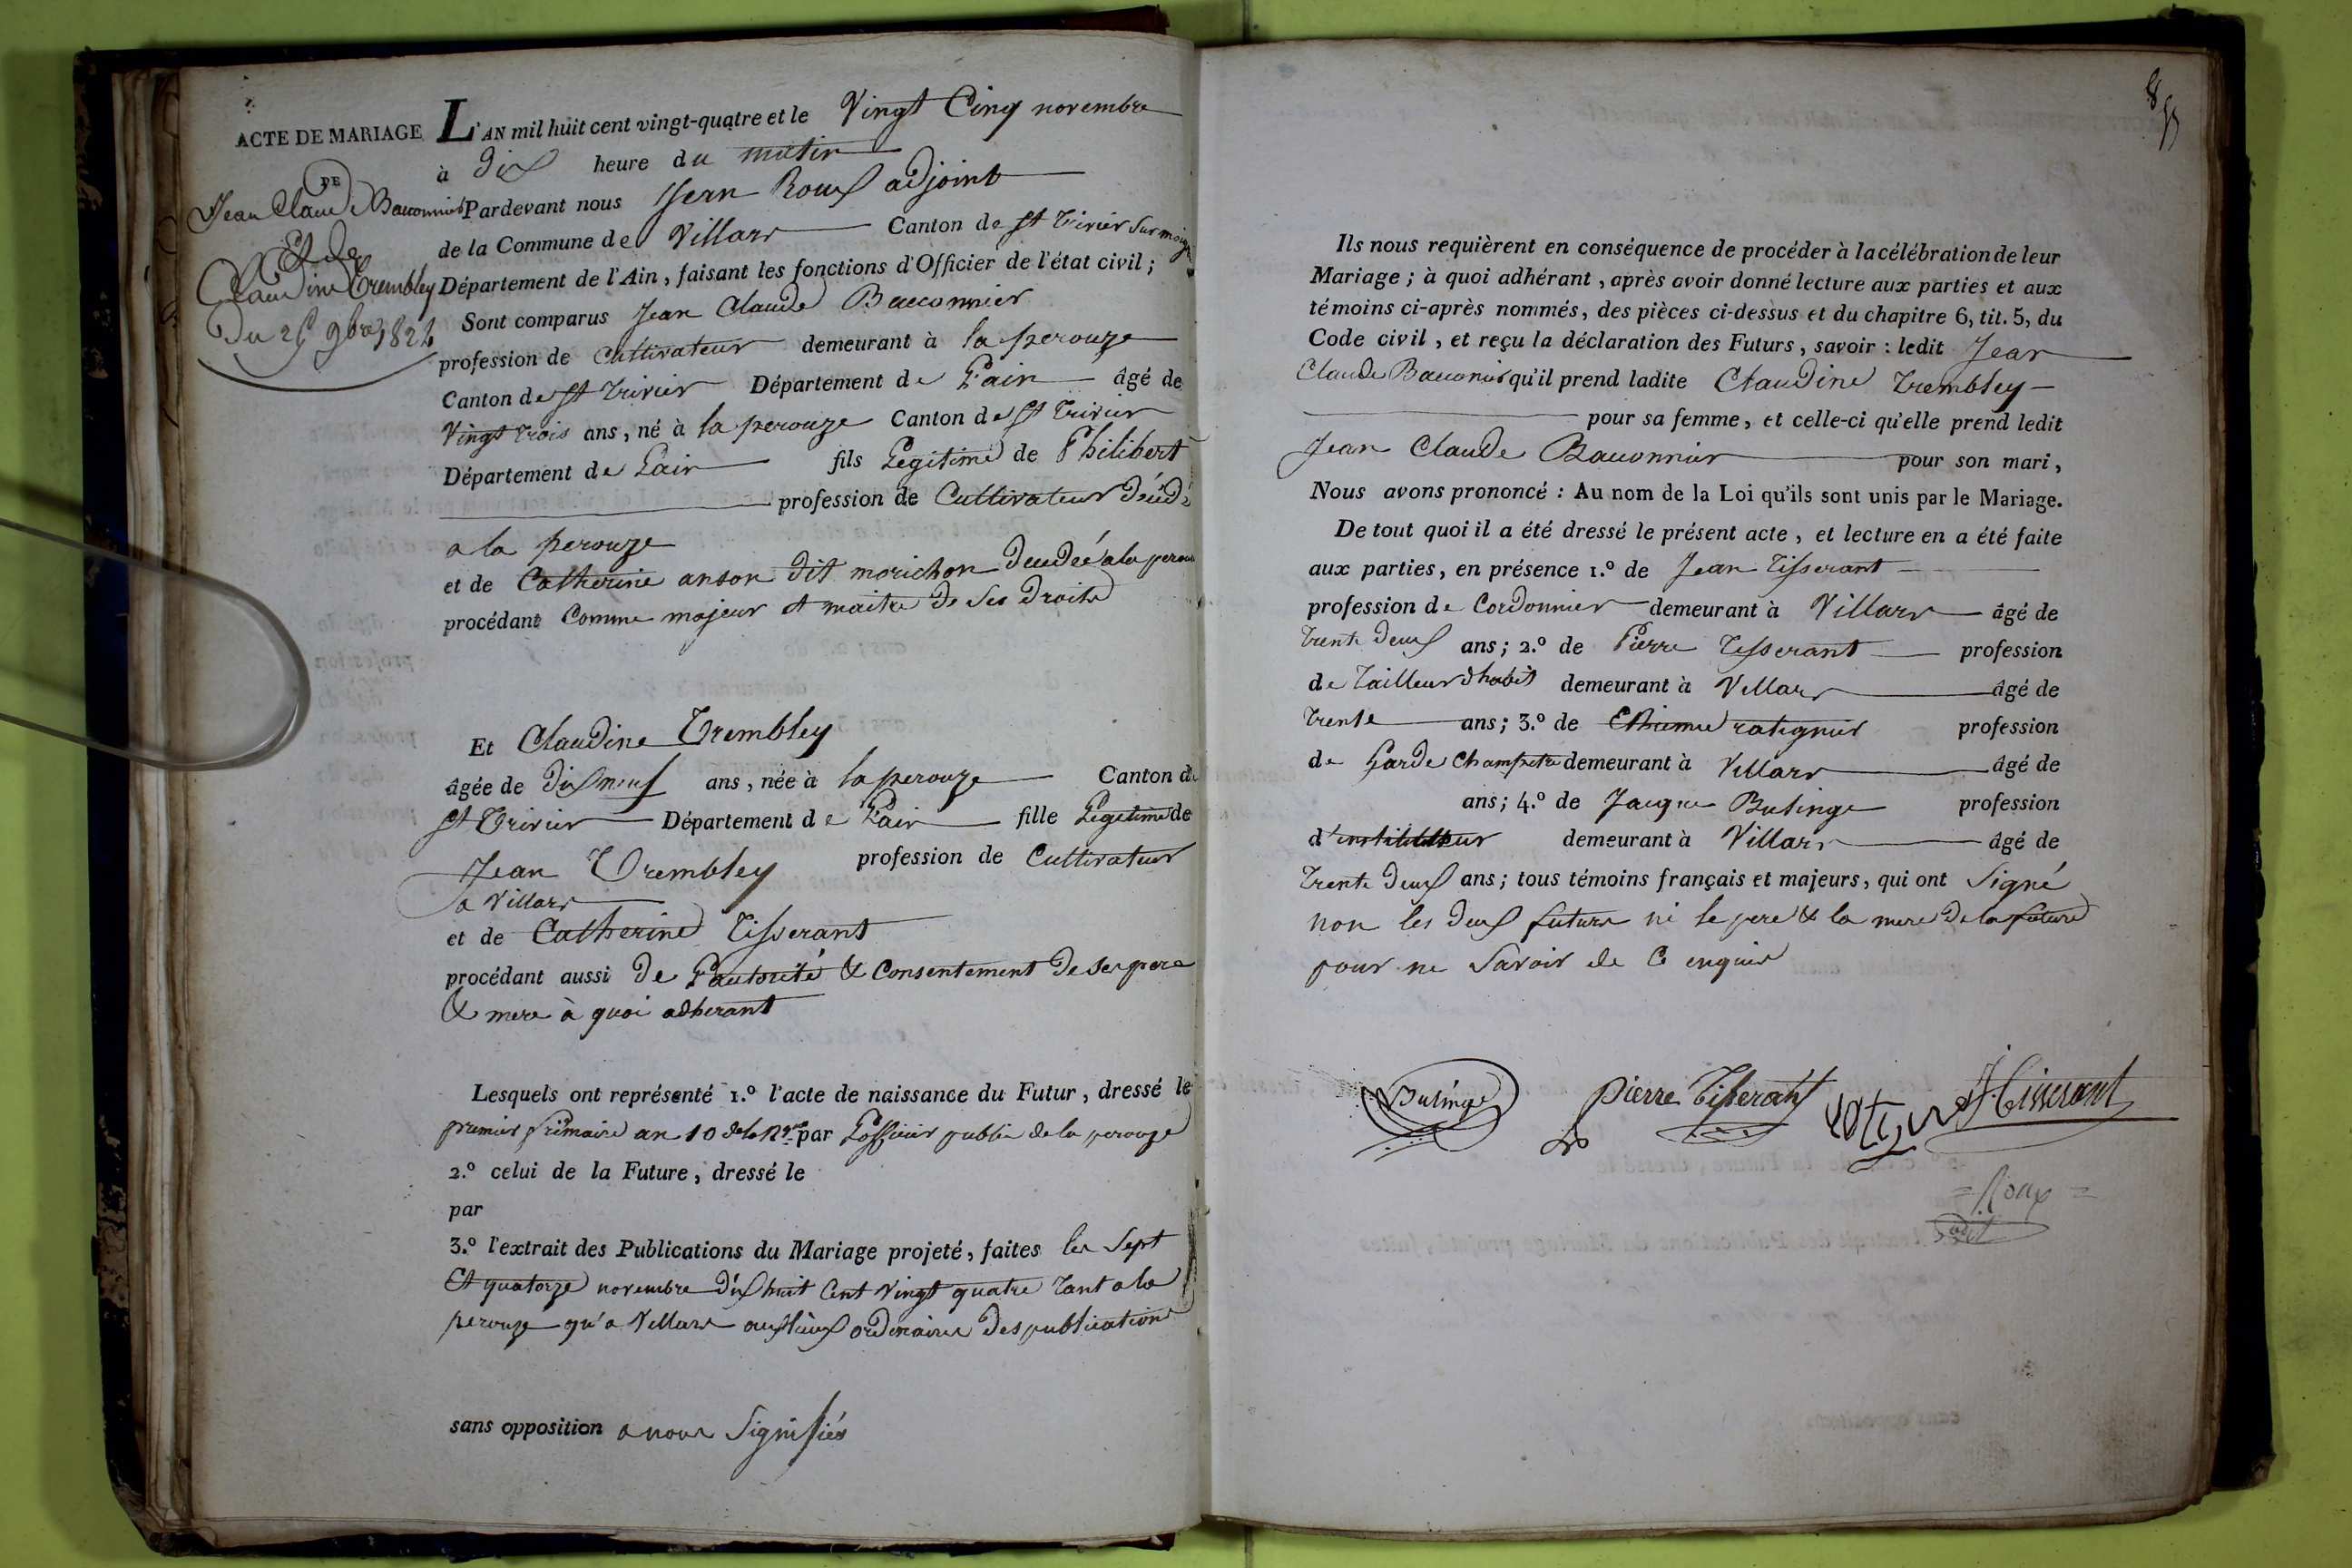 ACTE DE MARIAGE
DE
Jean Claude Bacconnier
Et de
Claudine Trembley
Du 25 9bre 1824
L'AN mil huit cent vingt-quatre et le Vingt Cinq novembre
à dix heure du matin
Pardevant nous Jean Roux adjoint
de la Commune de Villars Canton de St Trivier sur moig
Département de l'Ain, faisant les fonctions d'Officier de l'état civil;
Sont comparus Jean Claude Bacconnier
profession de Cultivateur demeurant à la perouze
Canton de St Trivier Département de L'ain âgé de
Vingt trois ans, né à la perouze Canton de St Trivier
Département de Lain fils Legitime de Philibert
profession de Cultivateur
a la perouze
et de Catherine anson dit morichon a la
procédant Comme majeur et maitre de ses droits
Et Claudine Trembley
âgée de dix neuf ans, née à la perouze Canton de
St Trivier Département de L'ain fille Legitime de
Jean Trembley profession de Cultivateur
a Villars
et de Catherine Tisserant
procédant aussi de L'autorité & Consentement de ses pere
& mere à quoi adherant
Lesquels ont représenté 1.º l'acte de naissance du Futur, dressé le
premier frimaire an 10 de la par L'officier public de la perouze
2.º celui de la Future, dressé le
par
3.º l'extrait des Publications du Mariage projeté, faites les Sept
Et quatorze novembre dix huit Cent Vingt quatre tant a la
perouze qu'a Villars aux lieux ordinaires des publications
sans opposition a nous Signifiés
Ils nous requièrent en conséquence de procéder à la célébration de leur
Mariage; à quoi adhérant, après avoir donné lecture aux parties et aux
témoins ci-après nommés, des pièces ci-dessus et du chapitre 6, tit. 5, du
Code civil, et reçu la déclaration des Futurs, savoir: ledit Jean
Claude Bacconier qu'il prend ladite Claudine Trembley
pour sa femme, et celle-ci qu'elle prend ledit
Jean Claude Bacconnier pour son mari,
Nous avons prononcé: Au nom de la Loi qu'ils sont unis par le Mariage.
De tout quoi il a été dressé le présent acte, et lecture en a été faite
aux parties, en présence 1.º de Jean Tisserant
profession de Cordonnier demeurant à Villars âgé de
trente deux ans; 2.º de Pierre Tisserant profession
de Tailleur d'habit demeurant à Villars âgé de
trente ans; 3.º de Ethienne ratignier profession
de Garde Champetre demeurant à Villars âgé de
ans; 4.º de Jacque Bulinge profession
d'instituteur demeurant à Villars âgé de
Trente deux ans; tous témoins français et majeurs, qui ont Signé
non les deux futurs ni le pere & la mere de la future
pour ne Savoir de Ce enquis
Bulinge Pierre Tisserant J. Tisserant
Roux
adjt